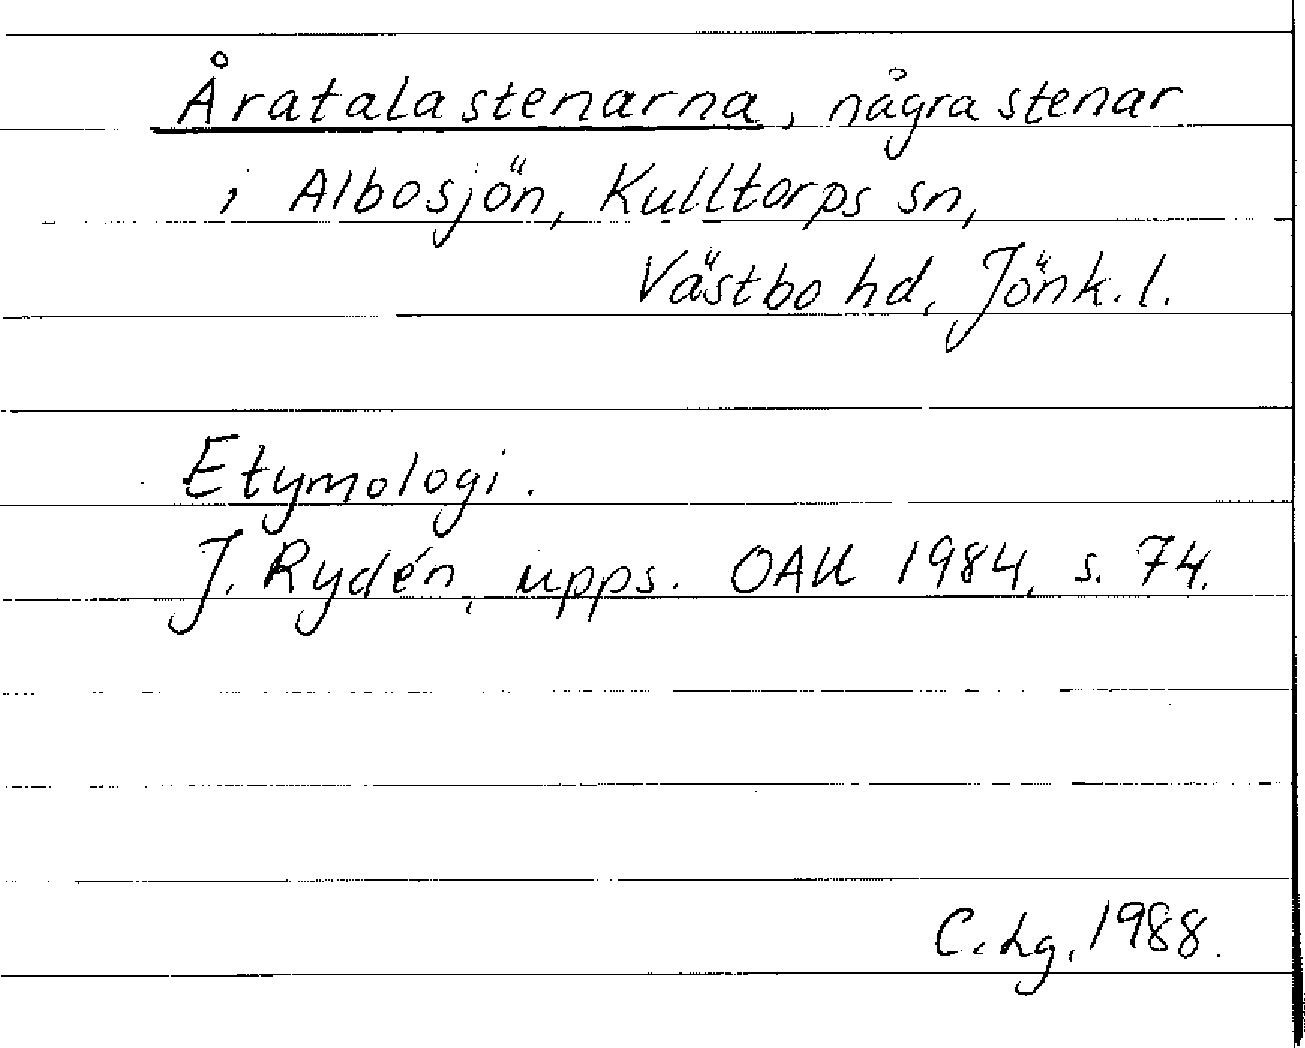 Åratalastenarna, några stenar
i Albosjön, Kulltorps sn,
Västbo hd, Jönk. l.
Etymologi.
J. Rydén, upps. OAU 1984, s. 74.
C. Lg, 1988.